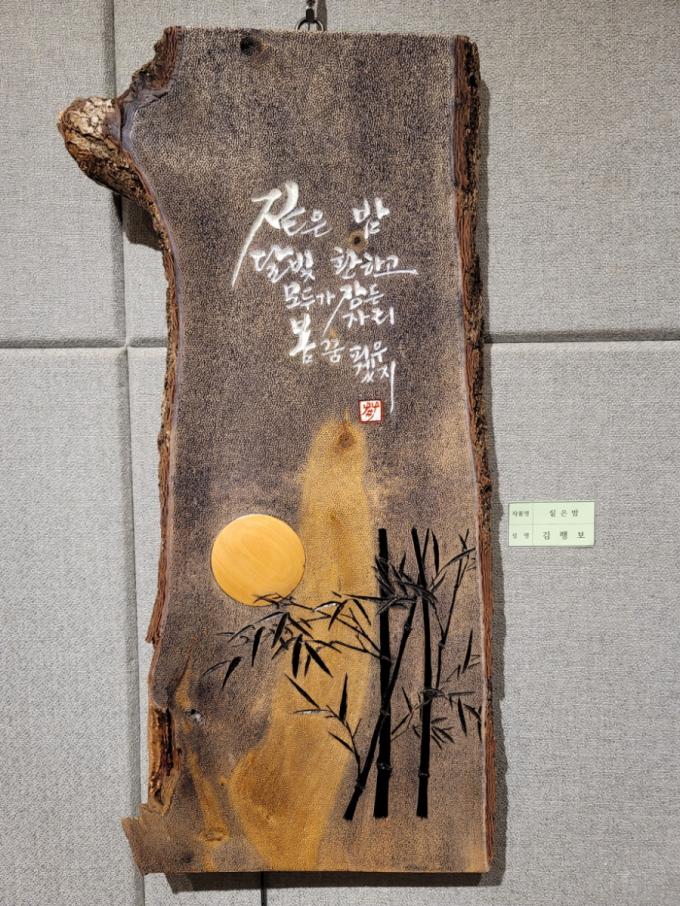 짙은 밤
달빛 환하고
모두가 잠든
자리
봄 꿈 피우
겠지
작품명 짙은밤
성 명 김 행 보